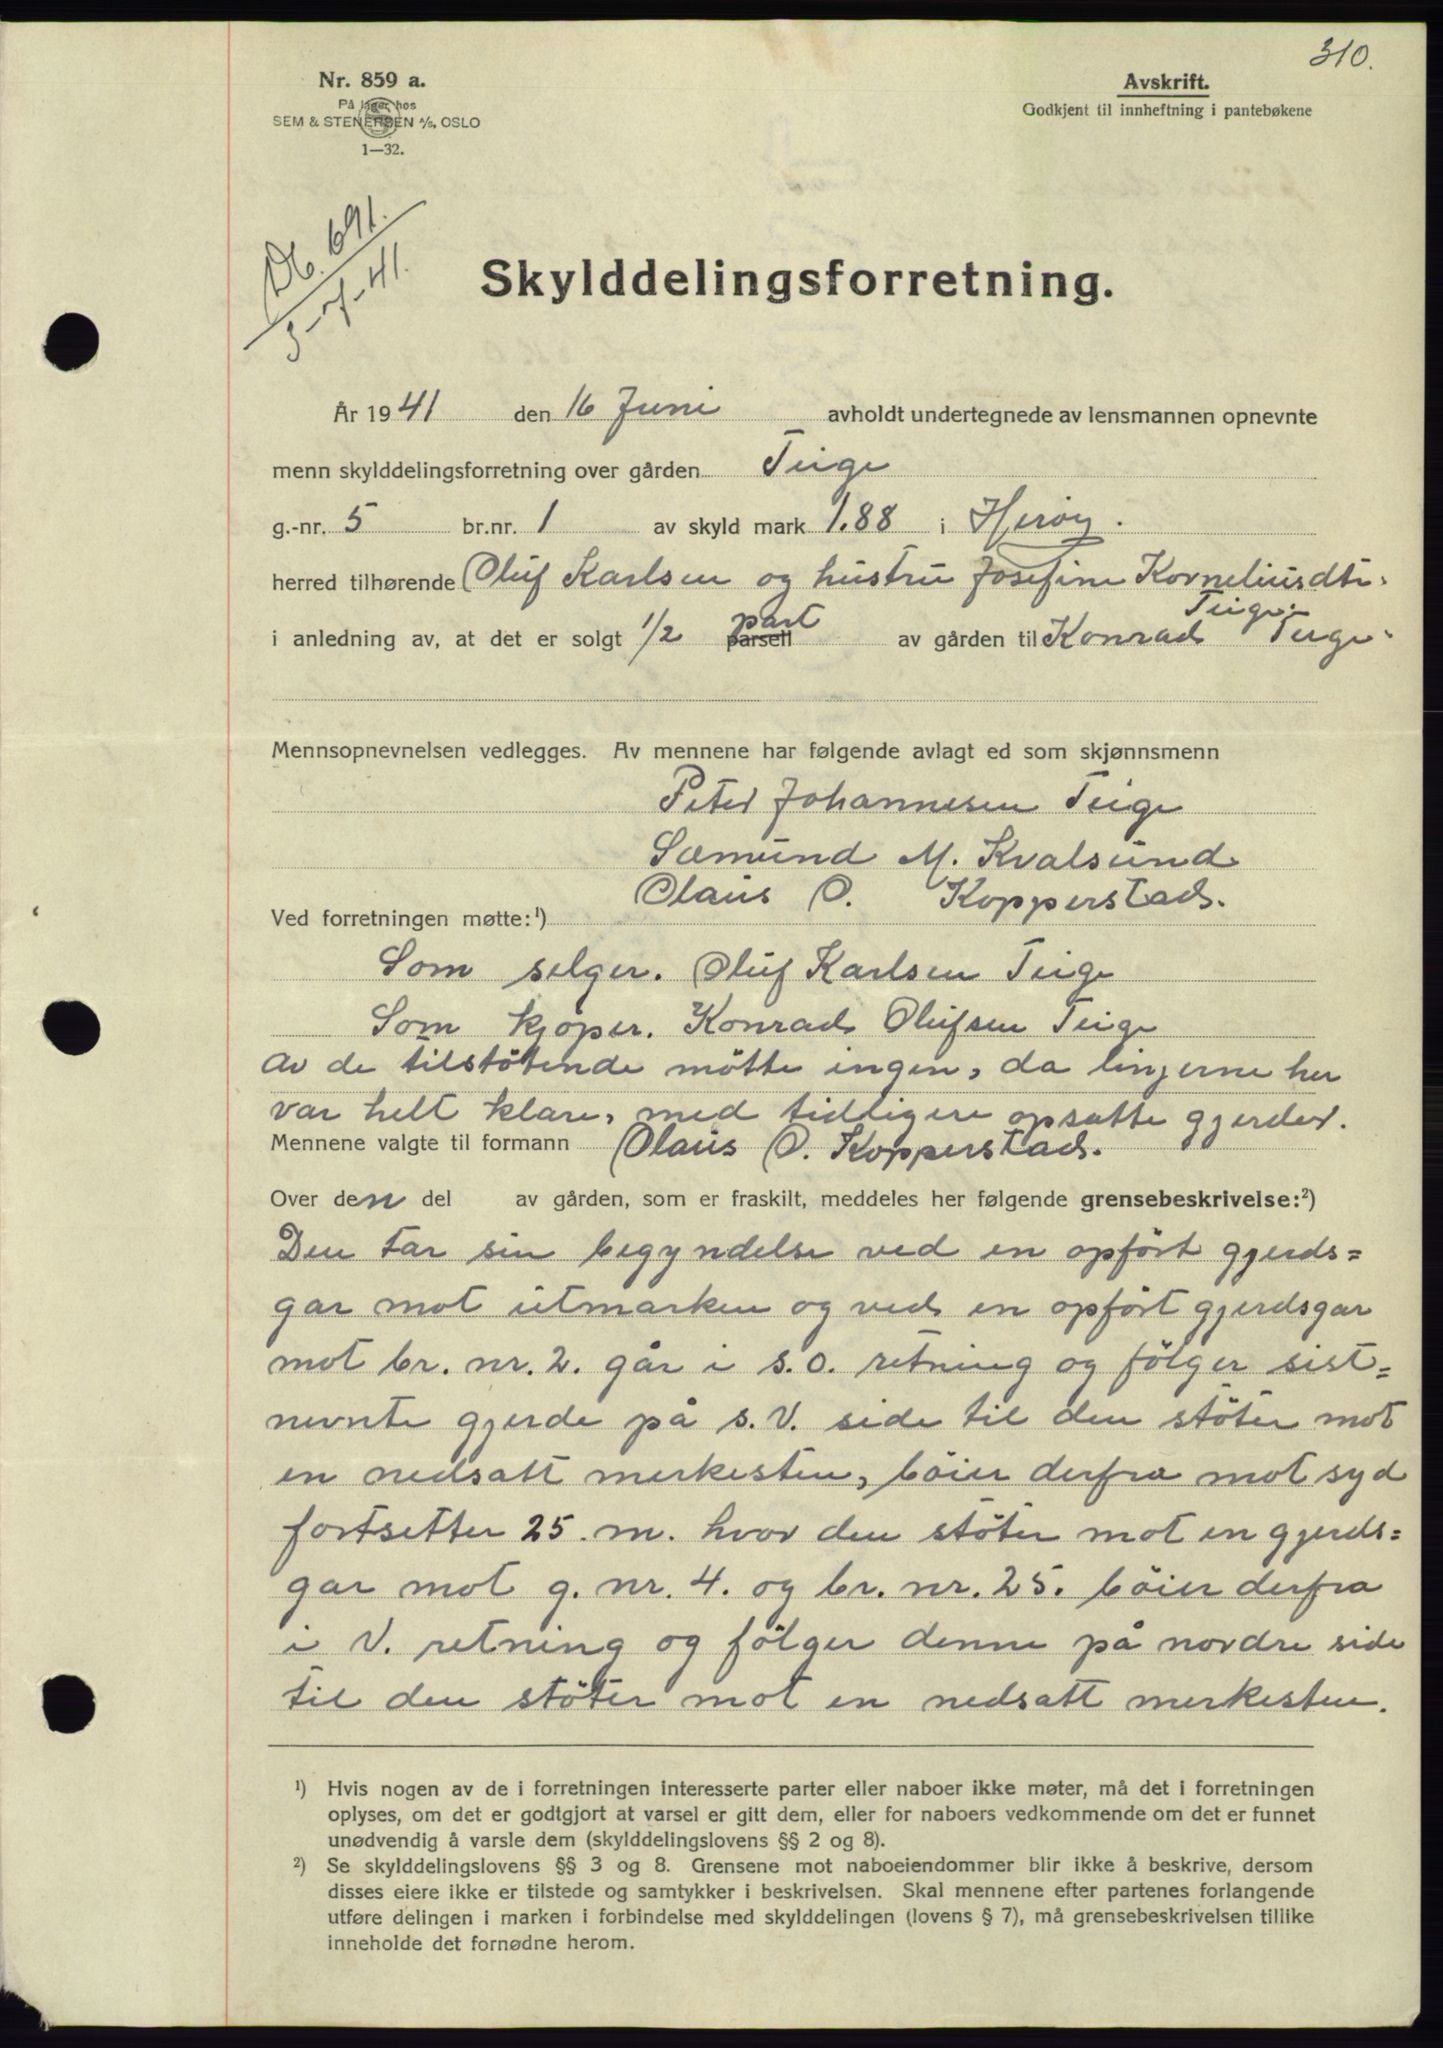 310.
Nr. 859 a.
På lager hos
SEM & STENERSEN A/S, OSLO
1—32.
Avskrift.
Godkjent til innheftning i pantebøkene
Db. 691.
3-7-41.
Skylddelingsforretning.
År 1941 den 16 Juni avholdt undertegnede av lensmannen opnevnte
menn skylddelingsforretning over gården Teige
g.-nr. 5 br.nr. 1 av skyld mark 1.88 i Herøy.
herred tilhørende Oluf Karlsen og hustru Josefine Korneliusdtr.
Teige.
i anledning av, at det er solgt 1/2 part parsell av gården til Konrad Teige.
Mennsopnevnelsen vedlegges. Av mennene har følgende avlagt ed som skjønnsmenn
Peter Johannesen Teige
Sæmund M. Kvalsund
Olaus O. Kopperstad.
Ved forretningen møtte:¹)
Som selger. Oluf Karlsen Teige
Som kjöper. Konrad Olufsen Teige
Av de tilstötende mötte ingen, da linjerne her
var helt klare, med tidligere opsatte gjerder.
Mennene valgte til formann Olaus O. Kopperstad.
Over den del av gården, som er fraskilt, meddeles her følgende grensebeskrivelse:²)
Den tar sin begyndelse ved en opfört gjerds=
gar mot utmarken og ved en opfört gjerdsgar
mot br. nr. 2. går i s.o. retning og fölger sist=
nevnte gjerde på s.V. side til den stöter mot
en nedsatt merkesten, böier derfra mot syd
fortsetter 25 m. hvor den stöter mot en gjerds=
gar mot g. nr. 4. og br. nr. 25. böier derfra
i V. retning og fölger denne på nordre side
til den stöter mot en nedsatt merkesten.
¹) Hvis nogen av de i forretningen interesserte parter eller naboer ikke møter, må det i forretningen
oplyses, om det er godtgjort at varsel er gitt dem, eller for naboers vedkommende om det er funnet
unødvendig å varsle dem (skylddelingslovens §§ 2 og 8).
²) Se skylddelingslovens §§ 3 og 8. Grensene mot naboeiendommer blir ikke å beskrive, dersom
disses eiere ikke er tilstede og samtykker i beskrivelsen. Skal mennene efter partenes forlangende
utføre delingen i marken i forbindelse med skylddelingen (lovens § 7), må grensebeskrivelsen tillike
inneholde det fornødne herom.